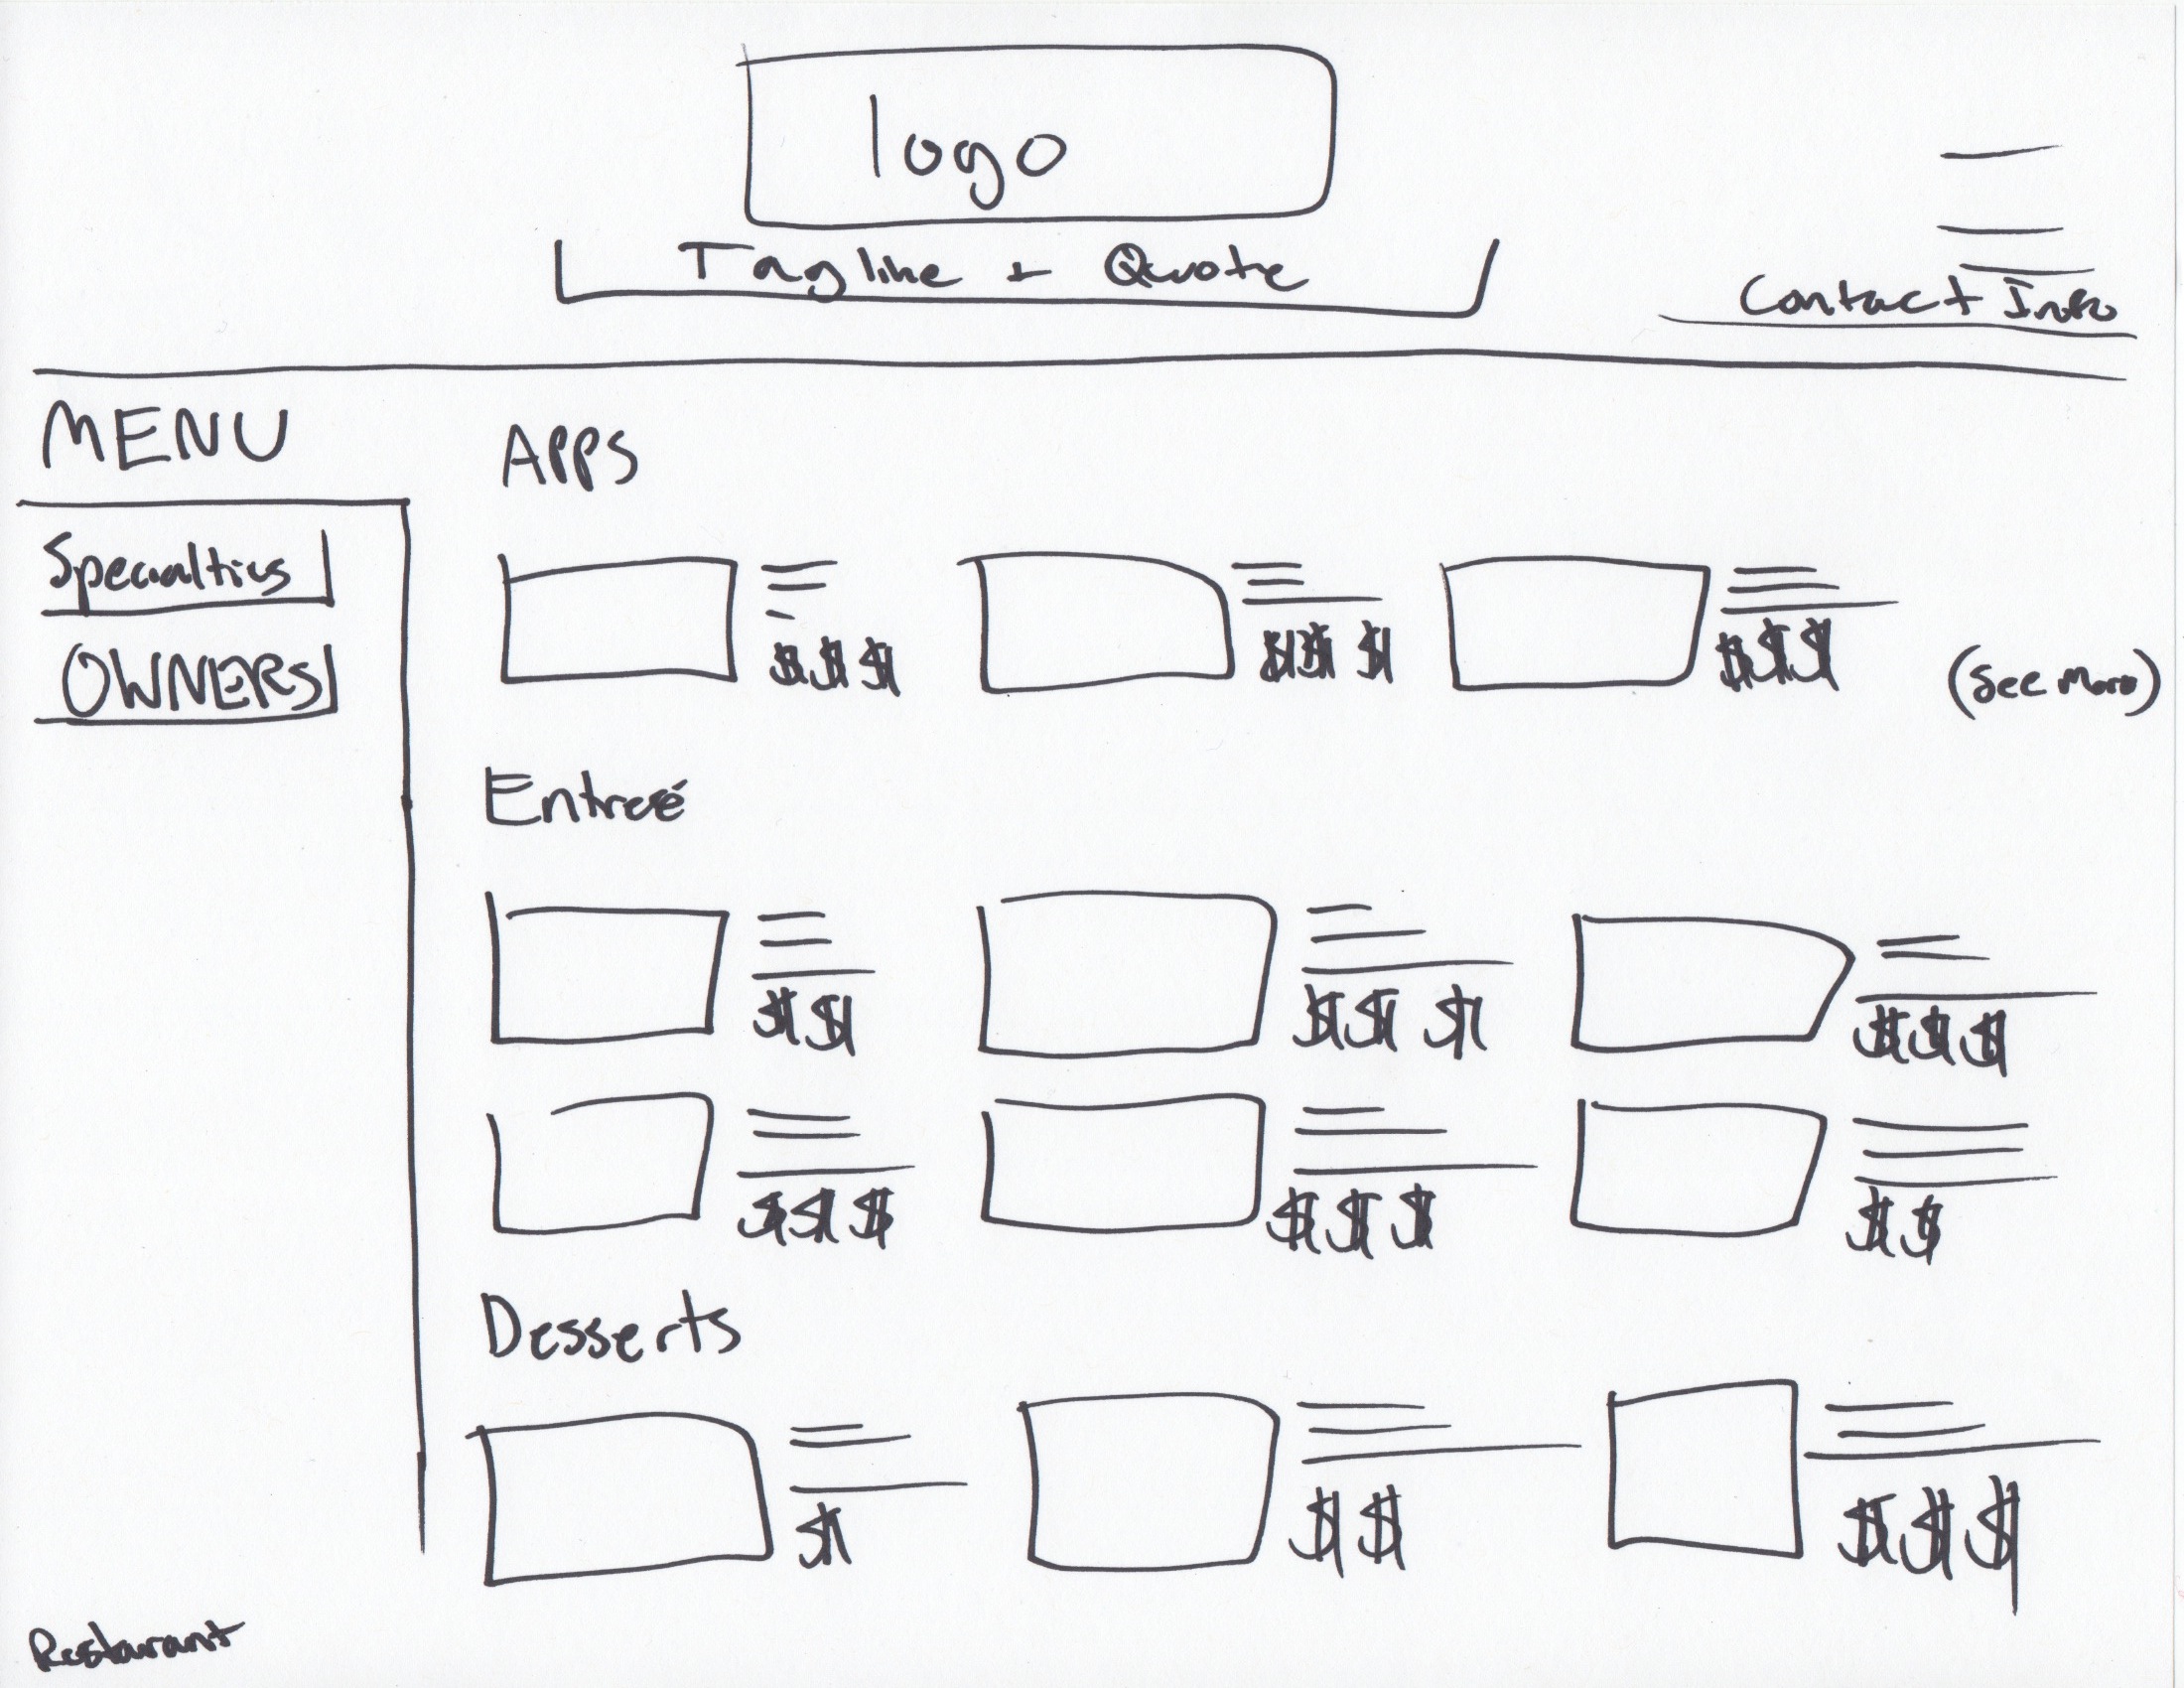 logo
Tagline + Quote
Contact Info
MENU
Specialties
OWNERS
APPS
$$$ $$$ $$$
(See More)
Entreé
$$ $$$ $$$
$$$ $$$ $$
Desserts
$ $$ $$$
Restaurant